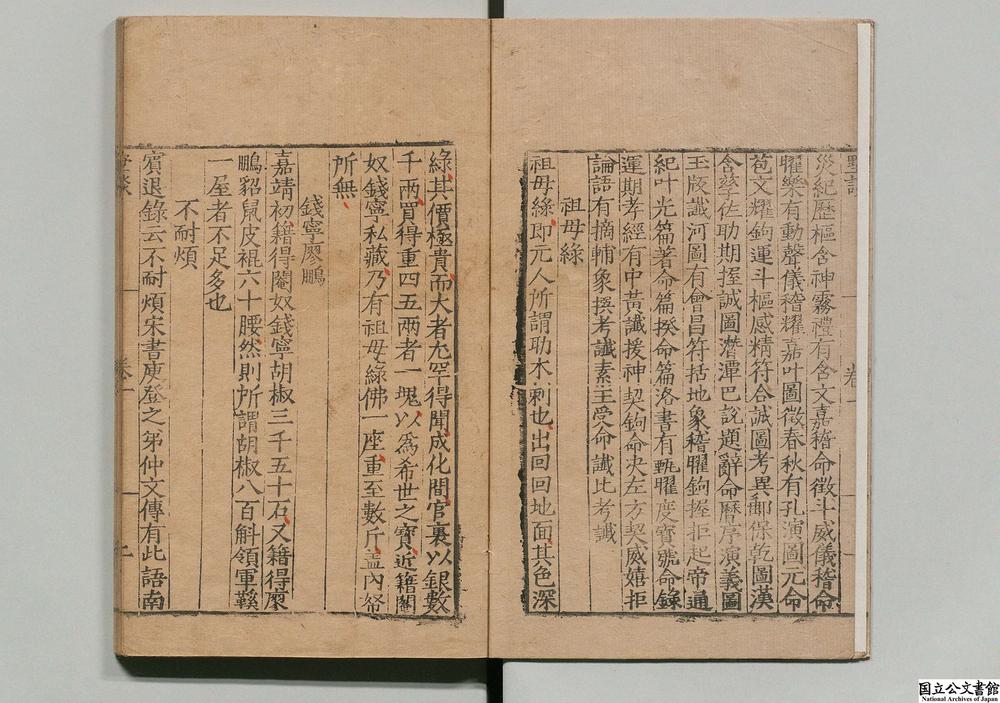 災紀歷樞含神霧禮有含文嘉稽命徵斗威儀稽命
曜樂有動聲儀稽耀嘉叶圖徵春秋有孔演圖元命
苞文耀鉤運斗樞感精符合誠圖考異郵保乾圖漢
含孳佐助期握誠圖潛潭巴說題辭命曆序演義圖
玉版讖河圖有會昌符括地象稽曜鉤握拒起帝通
紀叶光篇著命篇揆命篇洛書有甄曜度寶號命錄
運期孝經有中黃讖援神契鉤命決左方契威嬉拒
論語有摘輔象撰考讖素王受命讖比考讖
祖母綠
祖母綠即元人所謂助木剌也出回回地面其色深
綠其價極貴而大者尤罕得聞成化間官裏以銀數
千兩買得重四五兩者一塊以爲希世之寶近籍閹
奴錢寧私藏乃有祖母綠佛一座重至數斤蓋內帑
所無
錢寧廖鵬
嘉靖初籍得閹奴錢寧胡椒三千五十石又籍得廖
鵬貂鼠皮裩六十腰然則所謂胡椒八百斛領軍鞵
一屋者不足多也
不耐煩
賓退錄云不耐煩宋書庾登之弟仲文傳有此語南
卷一
卷一
二
国立公文書館
National Archives of Japan